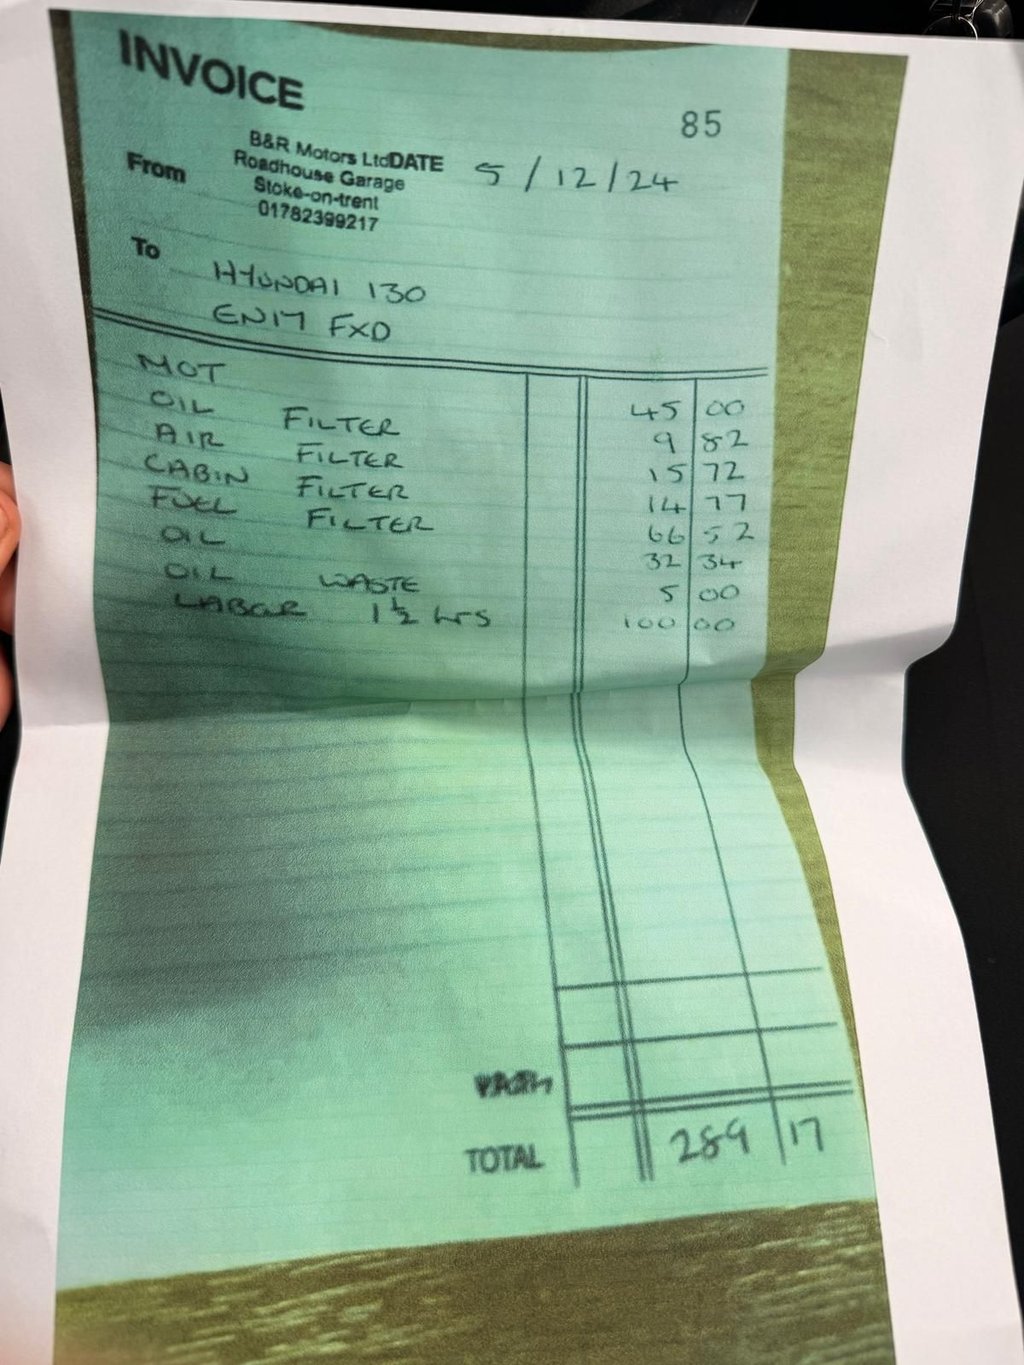 INVOICE
85
B&R Motors Ltd DATE 5/12/24
From Roadhouse Garage
Stoke-on-trent
01782399217
To
HYUNDAI 130
EN17 FXD
MOT 45 00
OIL FILTER 9 82
AIR FILTER 15 72
CABIN FILTER 14 77
FUEL FILTER 66 52
OIL 32 34
OIL WASTE 5 00
LABOUR 1½ hrs 100 00
TOTAL 289 17